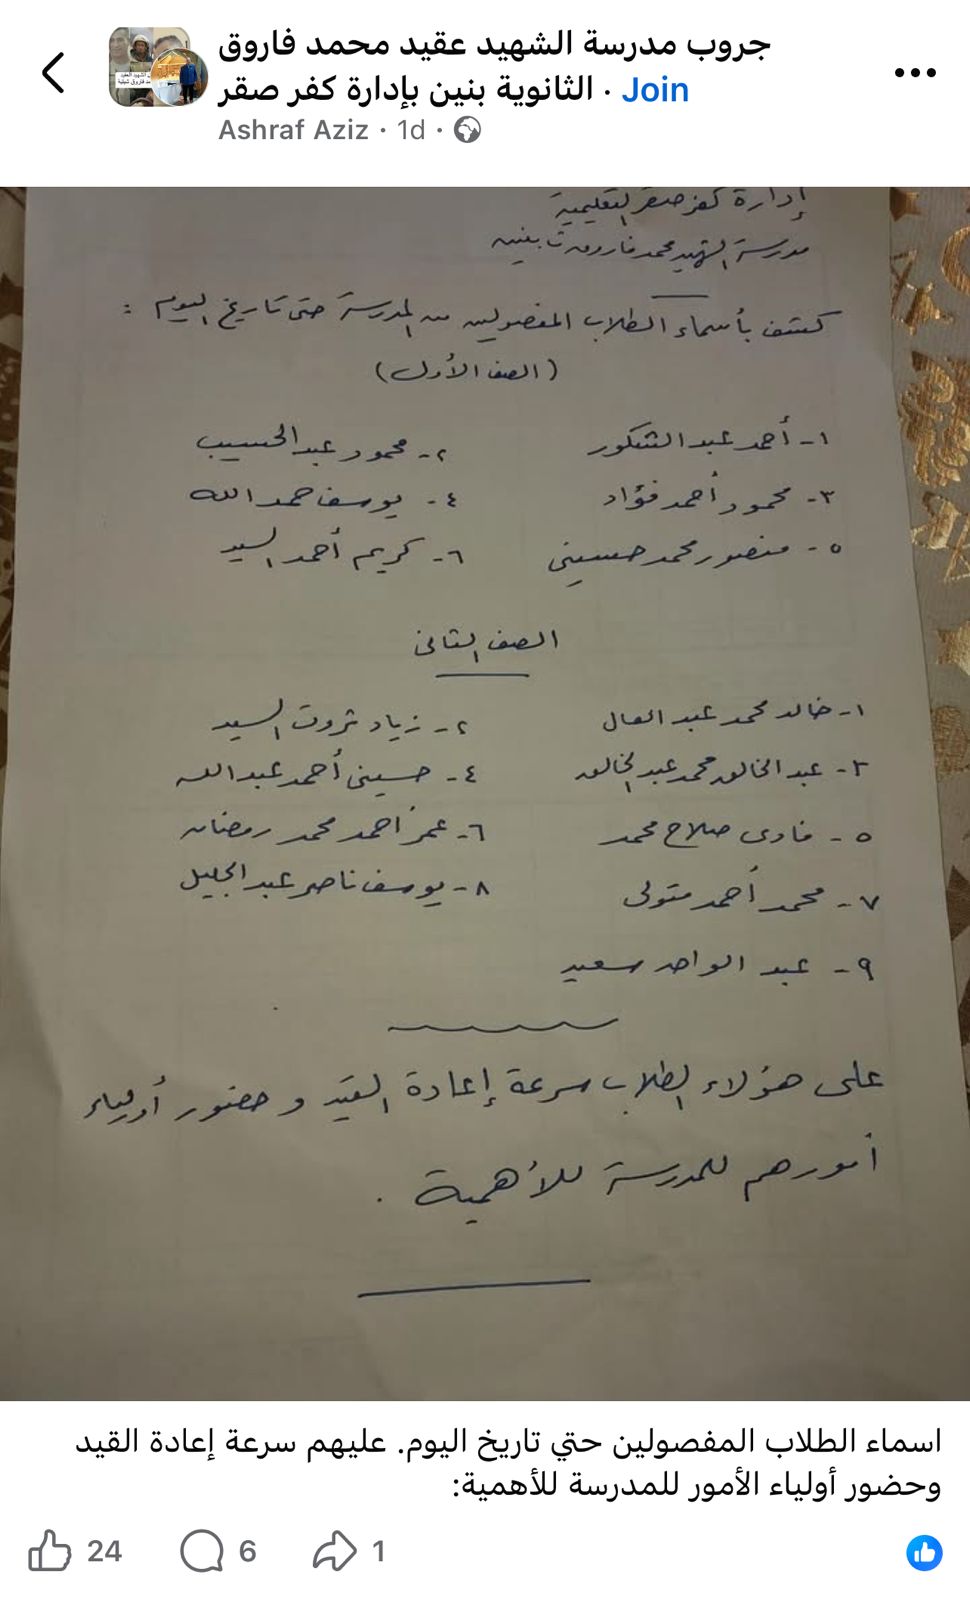 جروب مدرسة الشهيد عقيد محمد فاروق
الثانوية بنين بإدارة كفر صقر · Join
Ashraf Aziz · 1d ·
إدارة كفر صقر التعليمية
مدرسة الشهيد محمد فاروق ث بنين
كشف بأسماء الطلاب المفصولين من المدرسة حتى تاريخ اليوم :
(الصف الأول)
١- أحمد عبد الشكور ٢- محمود عبد الحسيب
٣- محمود أحمد فؤاد ٤- يوسف حمد الله
٥- منصور محمد حسينى ٦- كريم أحمد السيد
الصف الثانى
١- خالد محمد عبد العال ٢- زياد ثروت السيد
٣- عبد الخالق محمد عبد الخالق ٤- حسينى أحمد عبد الله
٥- فادى صلاح محمد ٦- عمر أحمد محمد رمضان
٧- محمد أحمد متولى ٨- يوسف ناصر عبد الجليل
٩- عبد الواحد سعيد
على هؤلاء الطلاب سرعة إعادة القيد و حضور أولياء
أمورهم للمدرسة للأهمية .
اسماء الطلاب المفصولين حتي تاريخ اليوم. عليهم سرعة إعادة القيد
وحضور أولياء الأمور للمدرسة للأهمية:
24 6 1